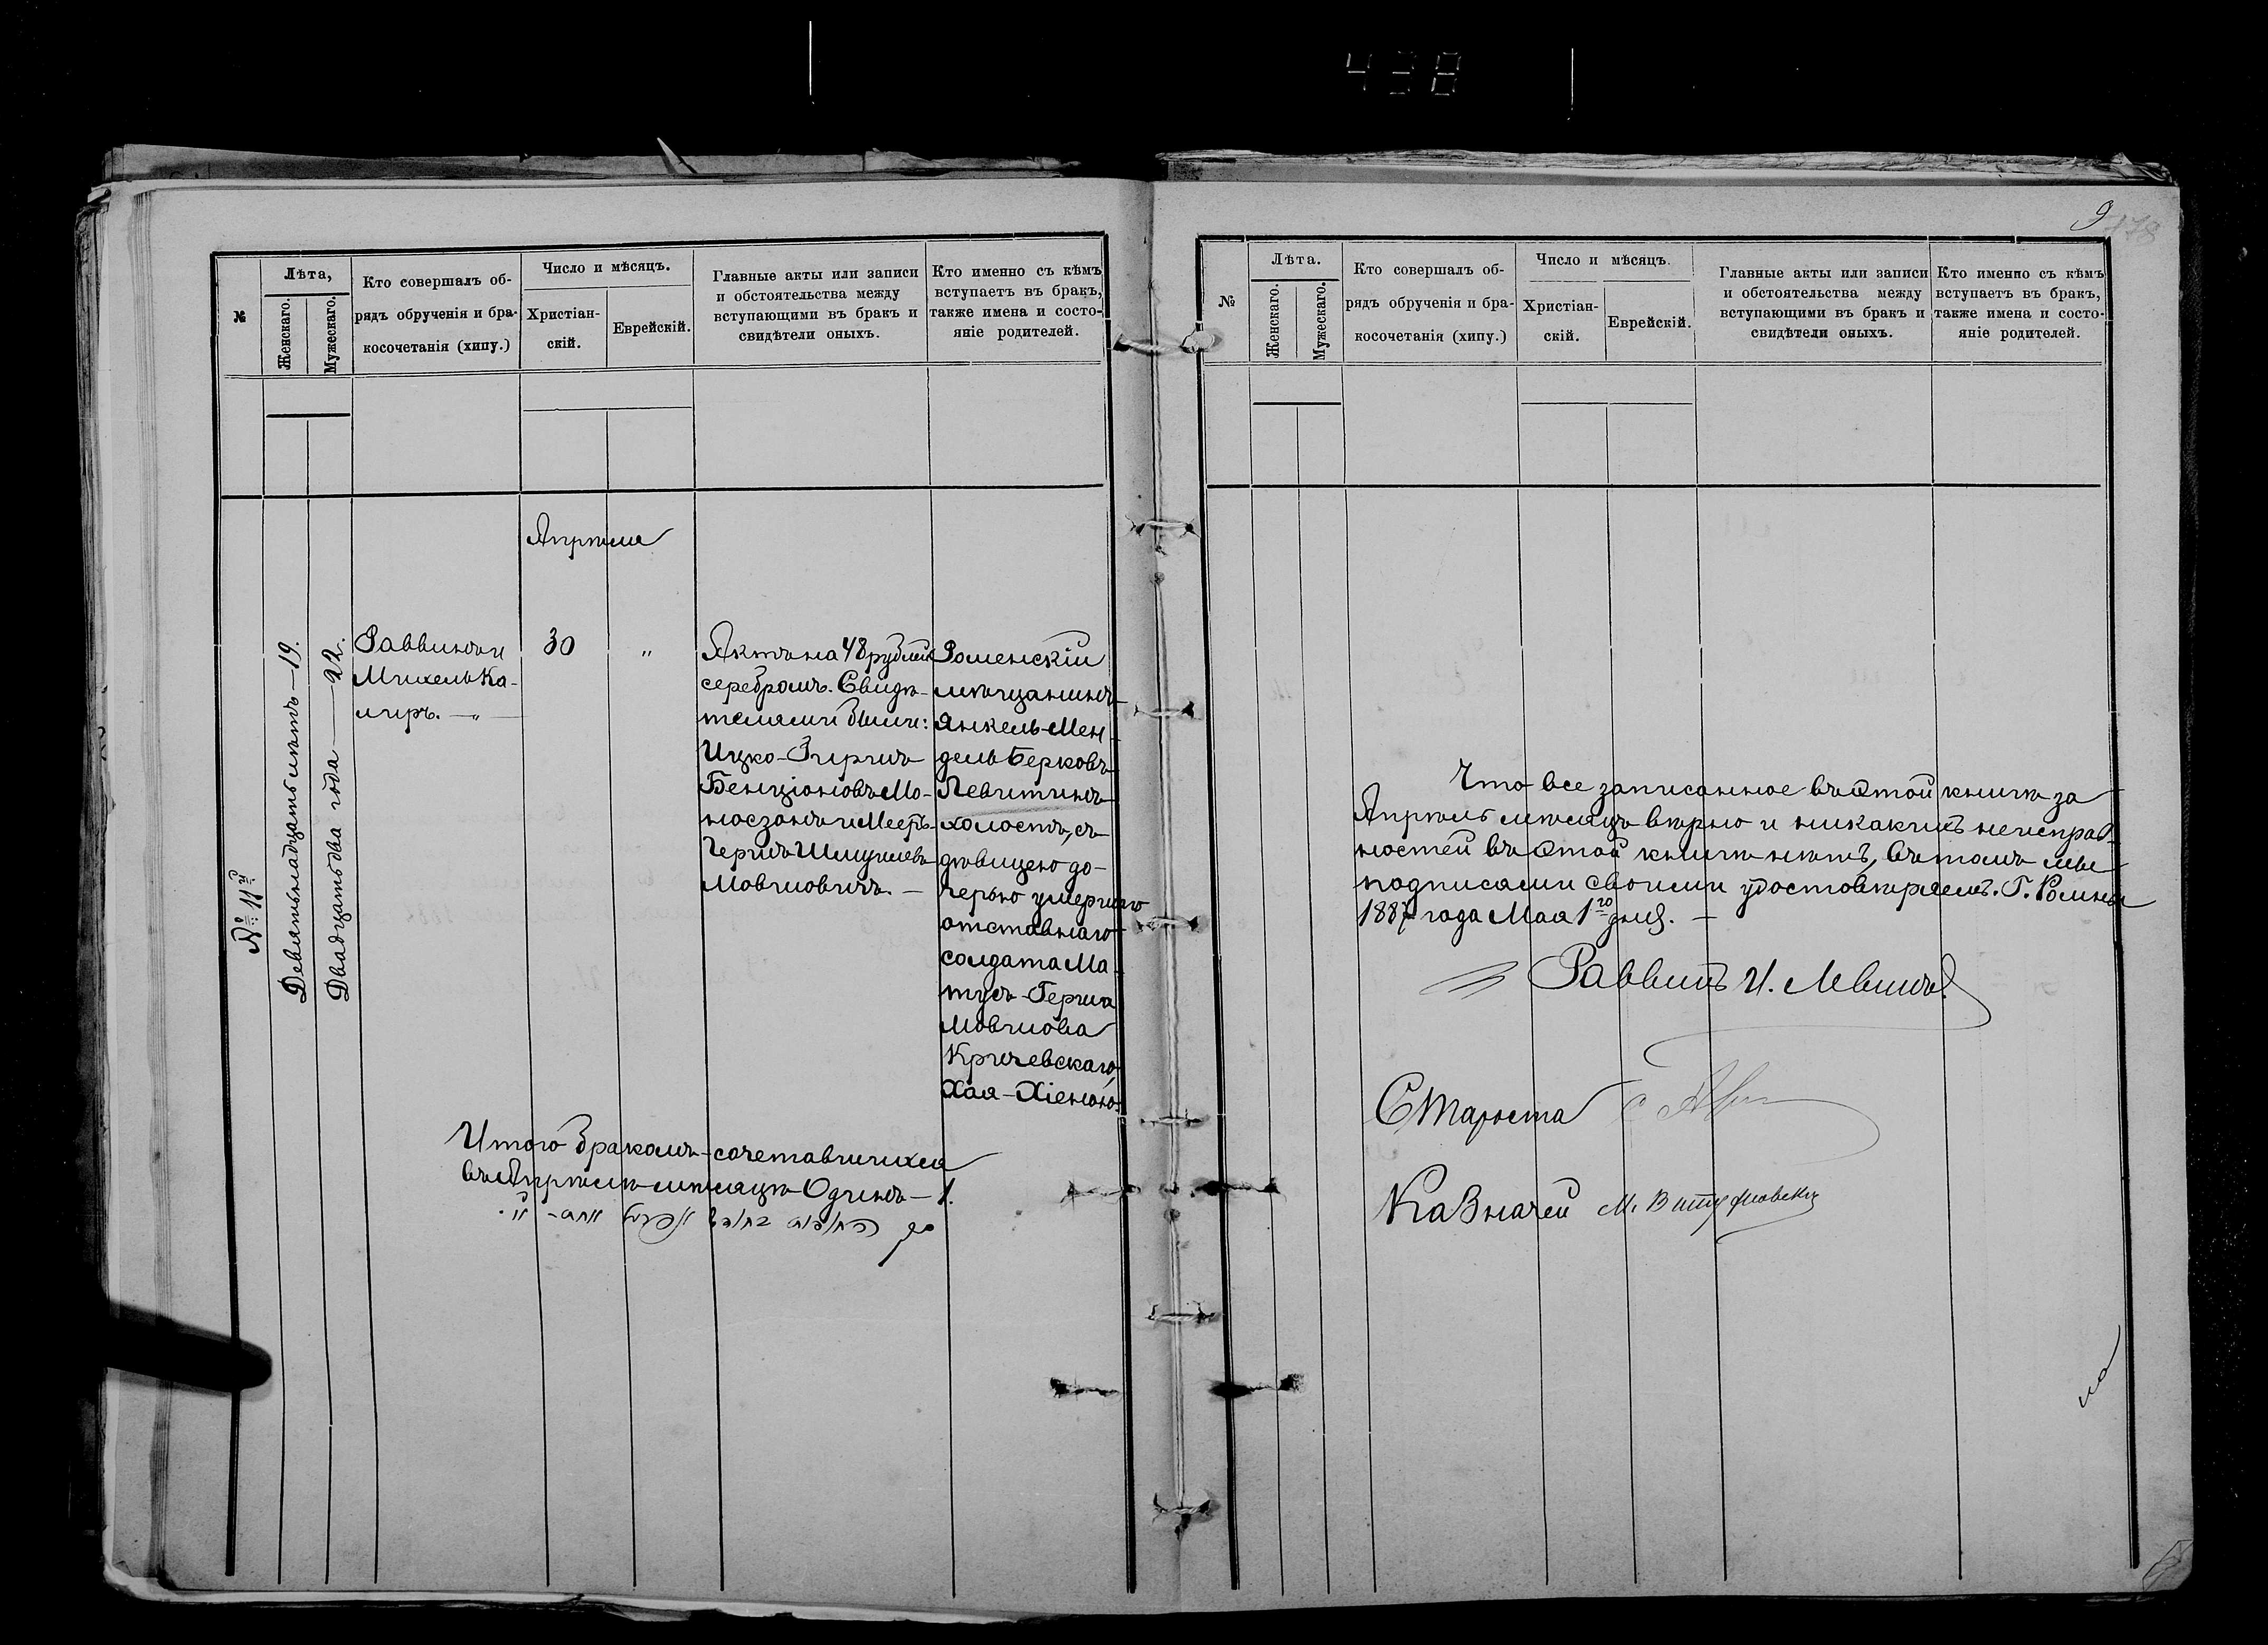 438
№
Лѣта,
Женскаго.
Мужескаго.
Кто совершалъ об-
рядъ обрученія и бра-
косочетанія (хипу.)
Число и мѣсяцъ.
Христіан-
скій.
Еврейскій.
Главные акты или записи
и обстоятельства между
вступающими въ бракъ и
свидѣтели оныхъ.
Кто именно съ кѣмъ
вступаетъ въ бракъ,
также имена и состо-
яніе родителей.
Апрѣля
№ 11й
Девятьнадцать лѣтъ — 19.
Двадцать два года — 22.
Раввинъ и
Михель Ка-
лиръ. — „ —
30
„
Актъ на 48 рублей
серебромъ. Свидѣ-
телями были:
Ицко-Гиршъ
Бенціоновъ Мо-
носзонъ и Мееръ-
Гершъ Шмуилевъ
Мовшовичъ. —
Роменскій
мѣщанинъ
Янкель-Мен-
дель Берковъ
Левитинъ
холостъ, съ
дѣвицею до-
черью умершаго
отставнаго
солдата Ма-
тусъ-Герша
Мовшова
Кричевскаго,
Хая-Хіеною.
Итого бракомъ-сочетавшихся
въ Апрѣлѣ мѣсяцѣ Одинъ — 1.
9
178
№
Лѣта.
Женскаго.
Мужескаго.
Кто совершалъ об-
рядъ обрученія и бра-
косочетанія (хипу.)
Число и мѣсяцъ.
Христіан-
скій.
Еврейскій.
Главные акты или записи
и обстоятельства между
вступающими въ бракъ и
свидѣтели оныхъ.
Кто именно съ кѣмъ
вступаетъ въ бракъ,
также имена и состо-
яніе родителей.
Что все записанное въ этой книгѣ за
Апрѣль мѣсяцъ вѣрно и никакихъ неисправ-
ностей въ этой книгѣ нѣтъ, въ томъ мы
подписями своими удостовѣряемъ. Г. Ромны
1887 года Мая 1го дня. —
Раввинъ И.
Староста
Казначей М.